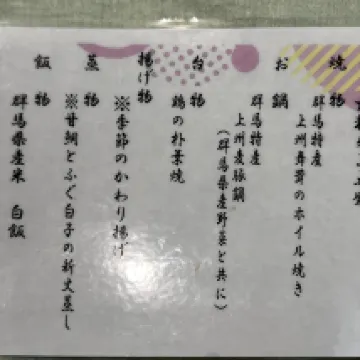 焼物
群馬特産
上州舞茸のホイル焼き
お鍋
群馬特産
上州麦豚鍋
（群馬県産野菜と共に）
台物
鶏の朴葉焼
揚げ物
※季節のかわり揚げ
蒸物
※甘鯛とふぐ白子の新丈蒸し
飯物
群馬県産米 白飯